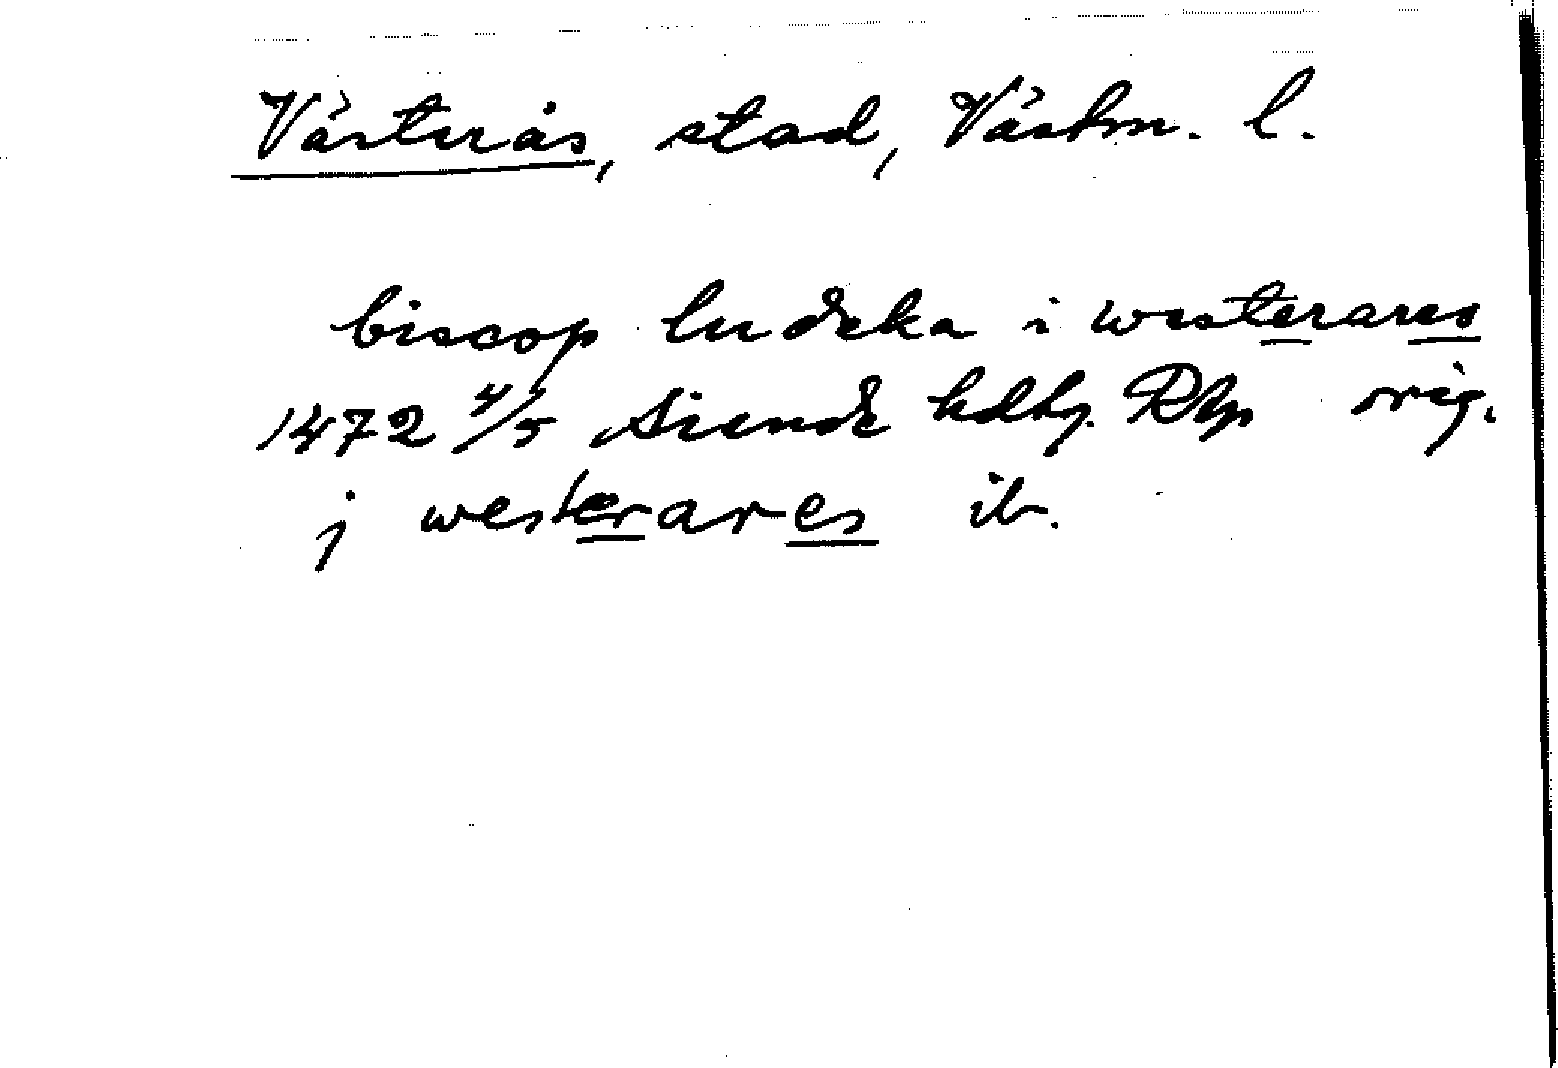 Västerås, stad, Västm. l.
biscop ludeka i westerares
1472 4/5 Siende hdhg. Rhp orig.
j westerares ib.